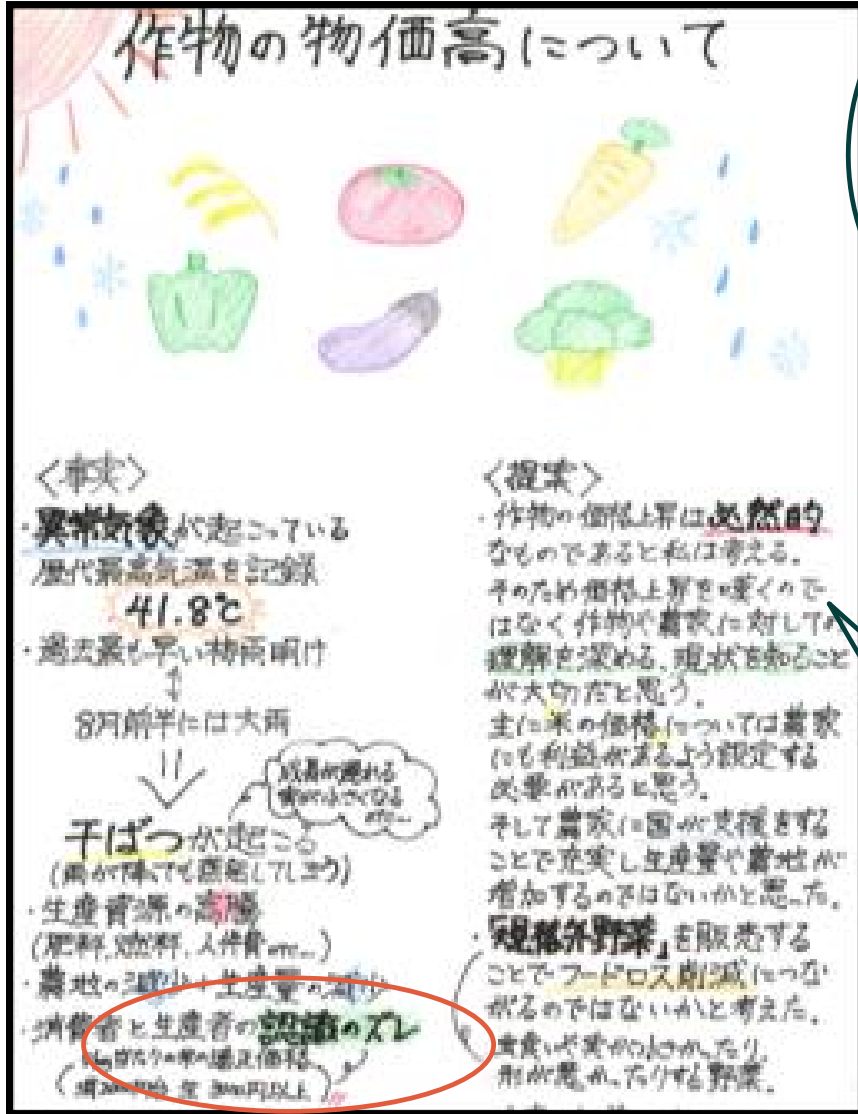 作物の物価高について
〈事実〉
・異常気象が起こっている
歴代最高気温を記録
41.8℃
・過去最も早い梅雨明け
8月前半には大雨
成長が遅れる
実が小さくなる
etc...
干ばつが起こる
(雨が降っても蒸発してしまう)
・生産資源の高騰
(肥料、燃料、人件費etc...)
・農地の減少・生産量の減少
・消費者と生産者の認識のズレ
〈提案〉
・作物の価格上昇は必然的
なものであると私は考える。
そのため価格上昇を嘆くので
はなく作物や農家に対しての
理解を深める、現状を知ること
が大切だと思う。
主に米の価格については農家
にも利益があるよう設定する
必要があると思う。
そして農家に国が支援をする
ことで充実し生産量や農地が
増加するのではないかと思った。
・「規格外野菜」を販売する
ことでフードロス削減につな
がるのではないかと考えた。
虫食いや実が小さかったり、
形が悪かったりする野菜。